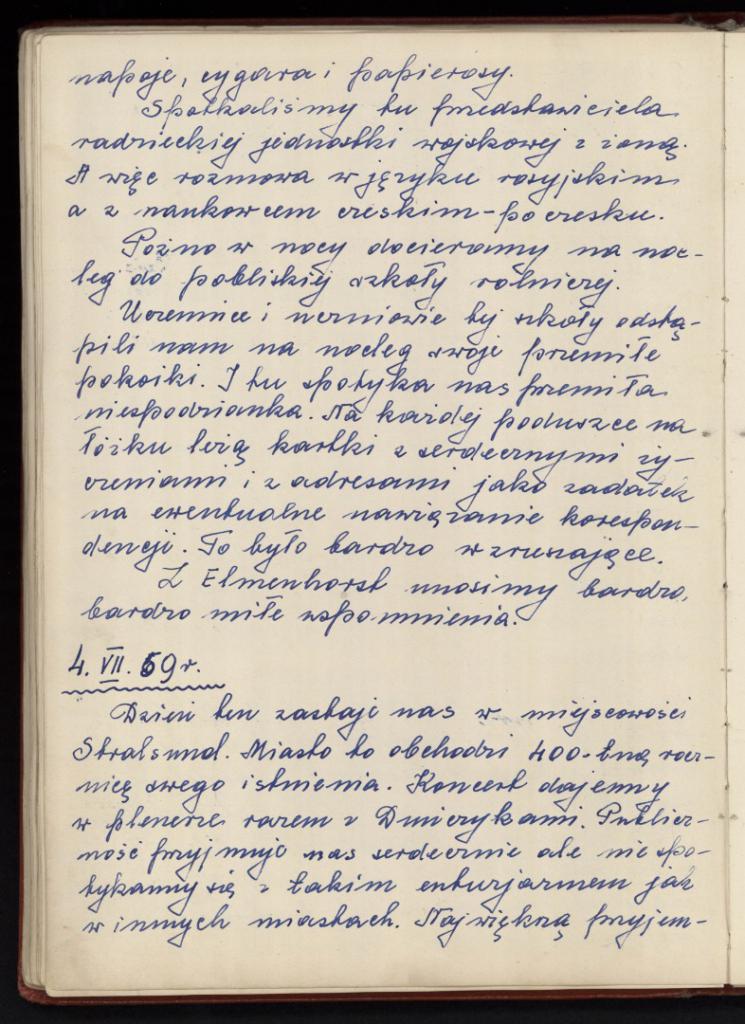 napoje, cygara i papierosy.
Spotkaliśmy tu przedstawiciela
radzieckiej jednostki wojskowej z żoną.
A więc rozmowa w języku rosyjskim
a z naukowcem czeskim - po czesku.
Poźno w nocy docieramy na noc-
leg do pobliskiej szkoły rolniczej.
Uczennice i uczniowie tej szkoły odstą-
pili nam na nocleg swoje przemiłe
pokoiki. I tu spotyka nas przemiła
niespodzianka. Na każdej poduszce na
łóżku leżą kartki z serdecznymi ży-
czeniami i z adresami jako zadatek
na ewentualne nawiązanie korespon-
dencji. To było bardzo wzruszające.
Z Elmenhorst unosimy bardzo,
bardzo miłe wspomnienia.
4. VII. 69 r.
Dzień ten zastaje nas w miejscowości
Stralsund. Miasto to obchodzi 400-tną rocz-
nicę swego istnienia. Koncert dajemy
w plenerze razem z Duńczykami. Publicz-
ność przyjmuje nas serdecznie ale nie spo-
tykamy się z takim entuzjazmem jak
w innych miastach. Największą przyjem-